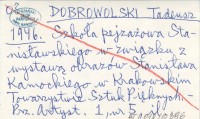 DOBROWOLSKI Tadeusz
1946. Szkoła pejzażowa Sta-
nisławskiego w związku z
wystawą obrazów Stanisława
Kamockiego w Krakowskim
Towarzystwie Sztuk Pięknych.-
Prz. Artyst. 1, nr 5, il.